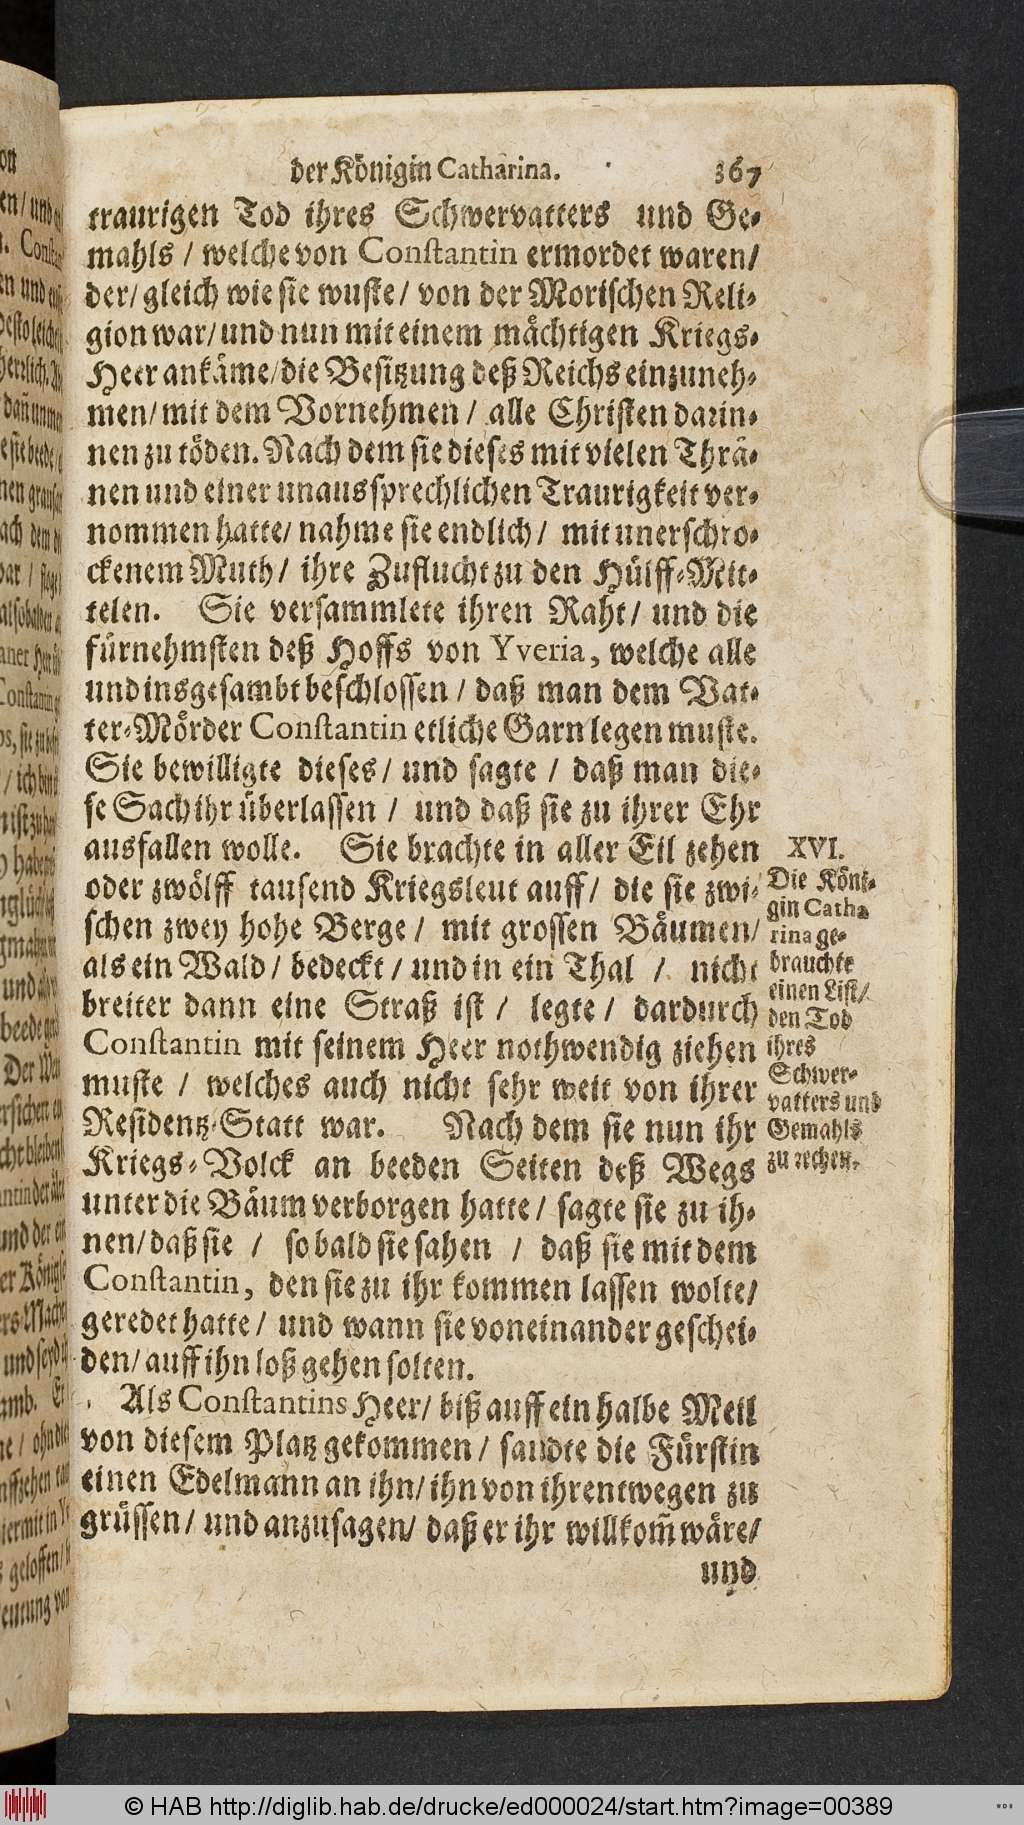 der Königin Catharina. 367
traurigen Tod ihres Schwervatters und Ge-
mahls / welche von Constantin ermordet waren/
der/ gleich wie sie wuste/ von der Morischen Reli-
gion war/ und nun mit einem mächtigen Kriegs-
Heer ankäme/ die Besitzung deß Reichs einzuneh-
men/ mit dem Vornehmen / alle Christen darin-
nen zu töden. Nach dem sie dieses mit vielen Thrä-
nen und einer unaussprechlichen Traurigkeit ver-
nommen hatte/ nahme sie endlich / mit unerschro-
ckenem Muth / ihre Zuflucht zu den Hülff-Mit-
telen. Sie versammlete ihren Raht/ und die
fürnehmsten deß Hoffs von Yveria, welche alle
und insgesambt beschlossen / daß man dem Vat-
ter-Mörder Constantin etliche Garn legen muste.
Sie bewilligte dieses/ und sagte / daß man die-
se Sach ihr überlassen / und daß sie zu ihrer Ehr
ausfallen wolle. Sie brachte in aller Eil zehen
oder zwölff tausend Kriegsleut auff/ die sie zwi-
schen zwey hohe Berge/ mit grossen Bäumen/
als ein Wald/ bedeckt / und in ein Thal / nicht
breiter dann eine Straß ist / legte / dardurch
Constantin mit seinem Heer nothwendig ziehen
muste / welches auch nicht sehr weit von ihrer
Residentz-Statt war. Nach dem sie nun ihr
Kriegs-Volck an beeden Seiten deß Wegs
unter die Bäum verborgen hatte / sagte sie zu ih-
nen/ daß sie / so bald sie sahen / daß sie mit dem
Constantin, den sie zu ihr kommen lassen wolte/
geredet hatte / und wann sie voneinander geschei-
den/ auff ihn loß gehen solten.
Als Constantins Heer/ biß auff ein halbe Meil
von diesem Platz gekommen / sandte die Fürstin
einen Edelmann an ihn/ ihn von ihrentwegen zu
grüssen/ und anzusagen/ daß er ihr willkom̃ wäre/
und
XVI.
Die Köni-
gin Catha-
rina ge-
brauchte
einen List/
den Tod
ihres
Schwer-
vatters und
Gemahls
zu rechen.
© HAB http://diglib.hab.de/drucke/ed000024/start.htm?image=00389